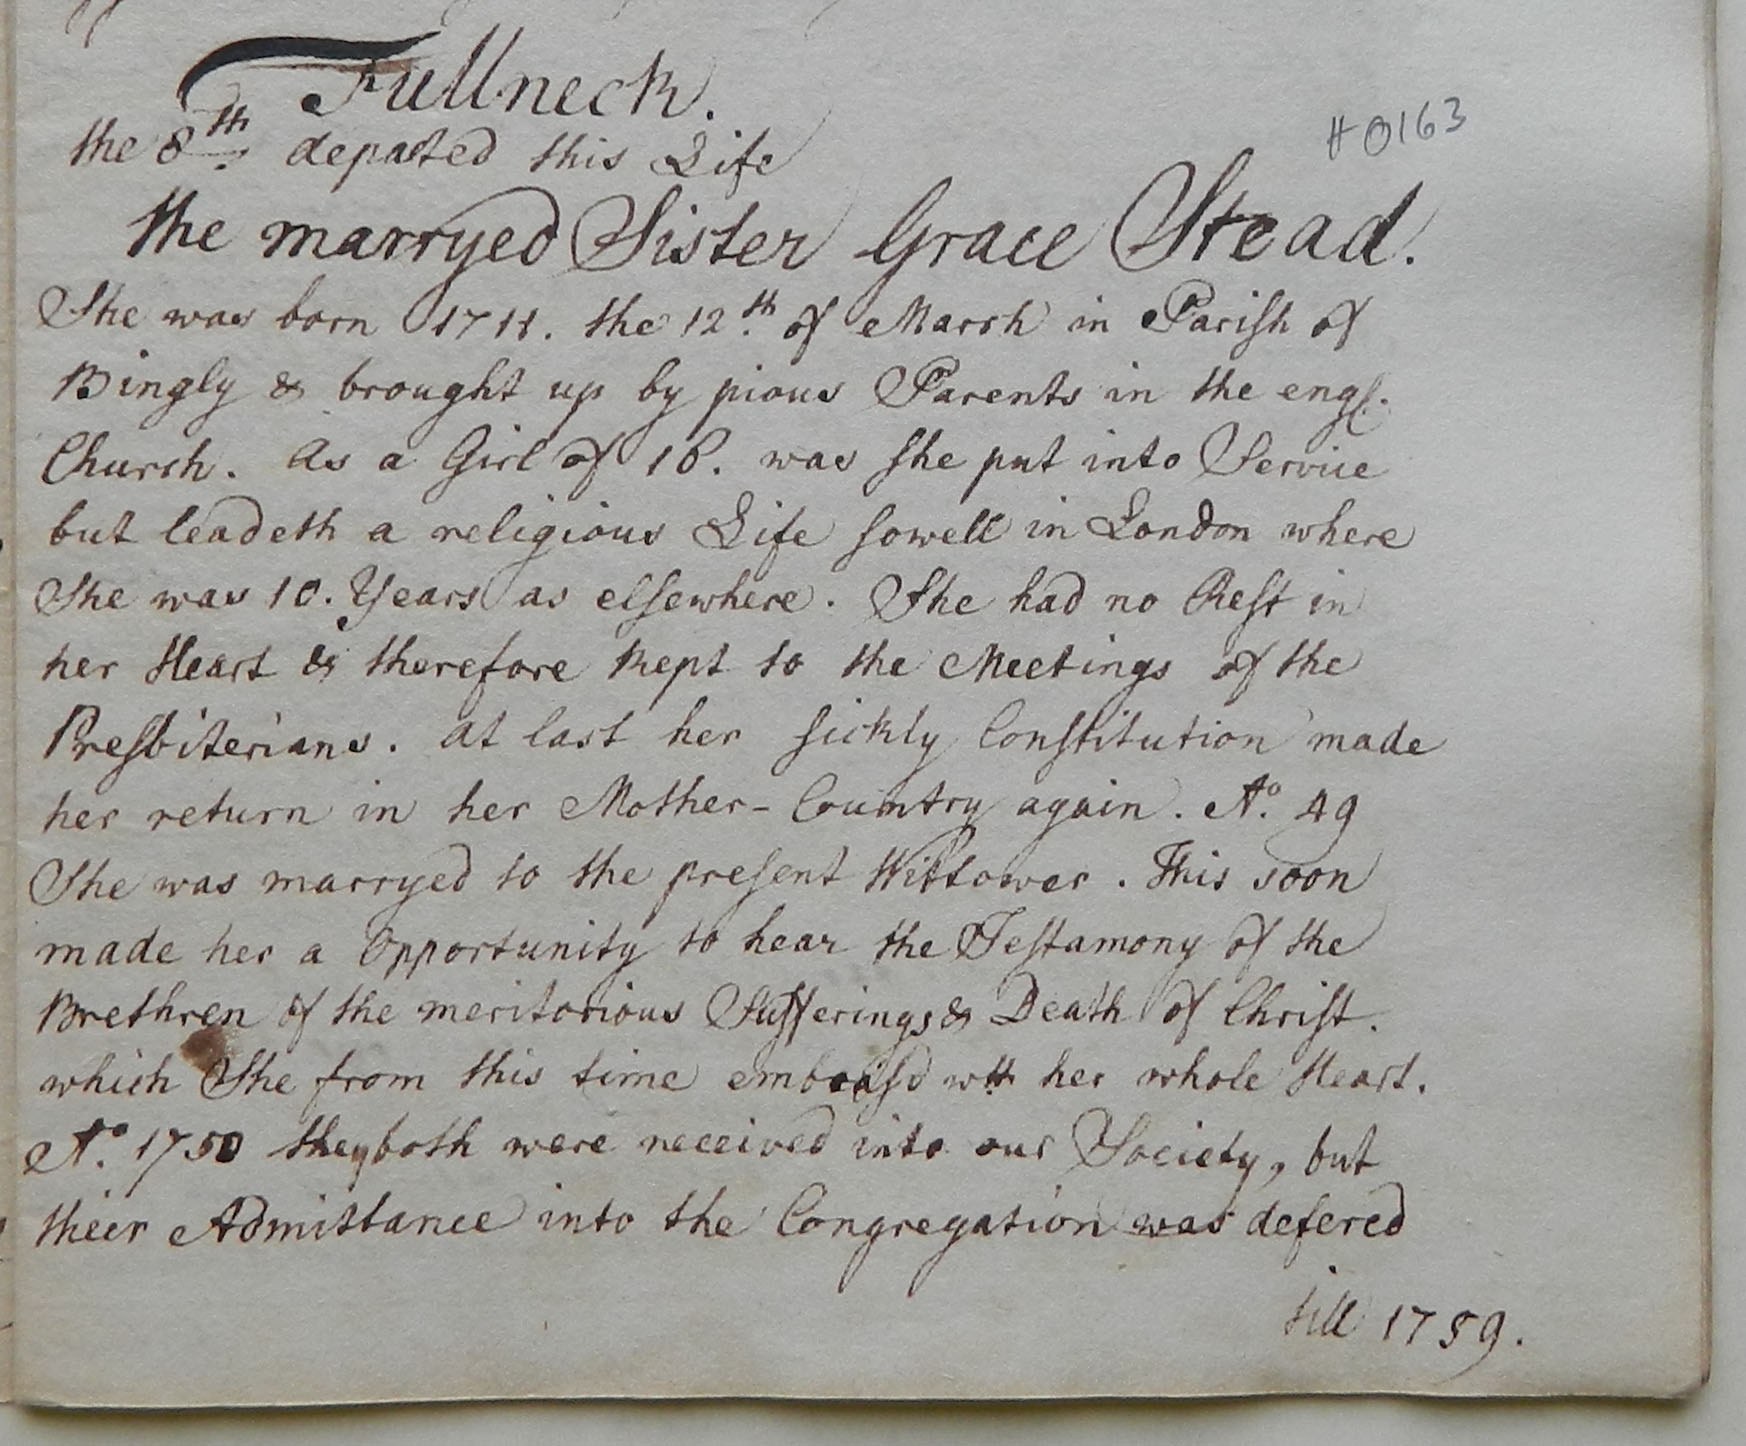 Fullneck.
# 0163
the 8th. depated this Life
the marryed Sister Grace Stead.
She was born 1711. the 12th. of March in Parish of
Bingly & brought up by pious Parents in the engl.
Church. As a Girl of 16. was she put into Service
but leadeth a religious Life sowell in London where
She was 10. Years as elsewhere. She had no Rest in
her Heart & therefore kept to the Meetings of the
Presbiterians. at last her sickly Constitution made
her return in her Mother-Country again. Ao. 49
She was marryed to the present Wittower. This soon
made her a Opportunity to hear the Testamony of the
Brethren of the meritorious Sufferings & Death of Christ.
which She from this time embrasd wth her whole Heart.
Ao. 1750 they both were received into our Society, but
their Admittance into the Congregation was defered
till 1759.